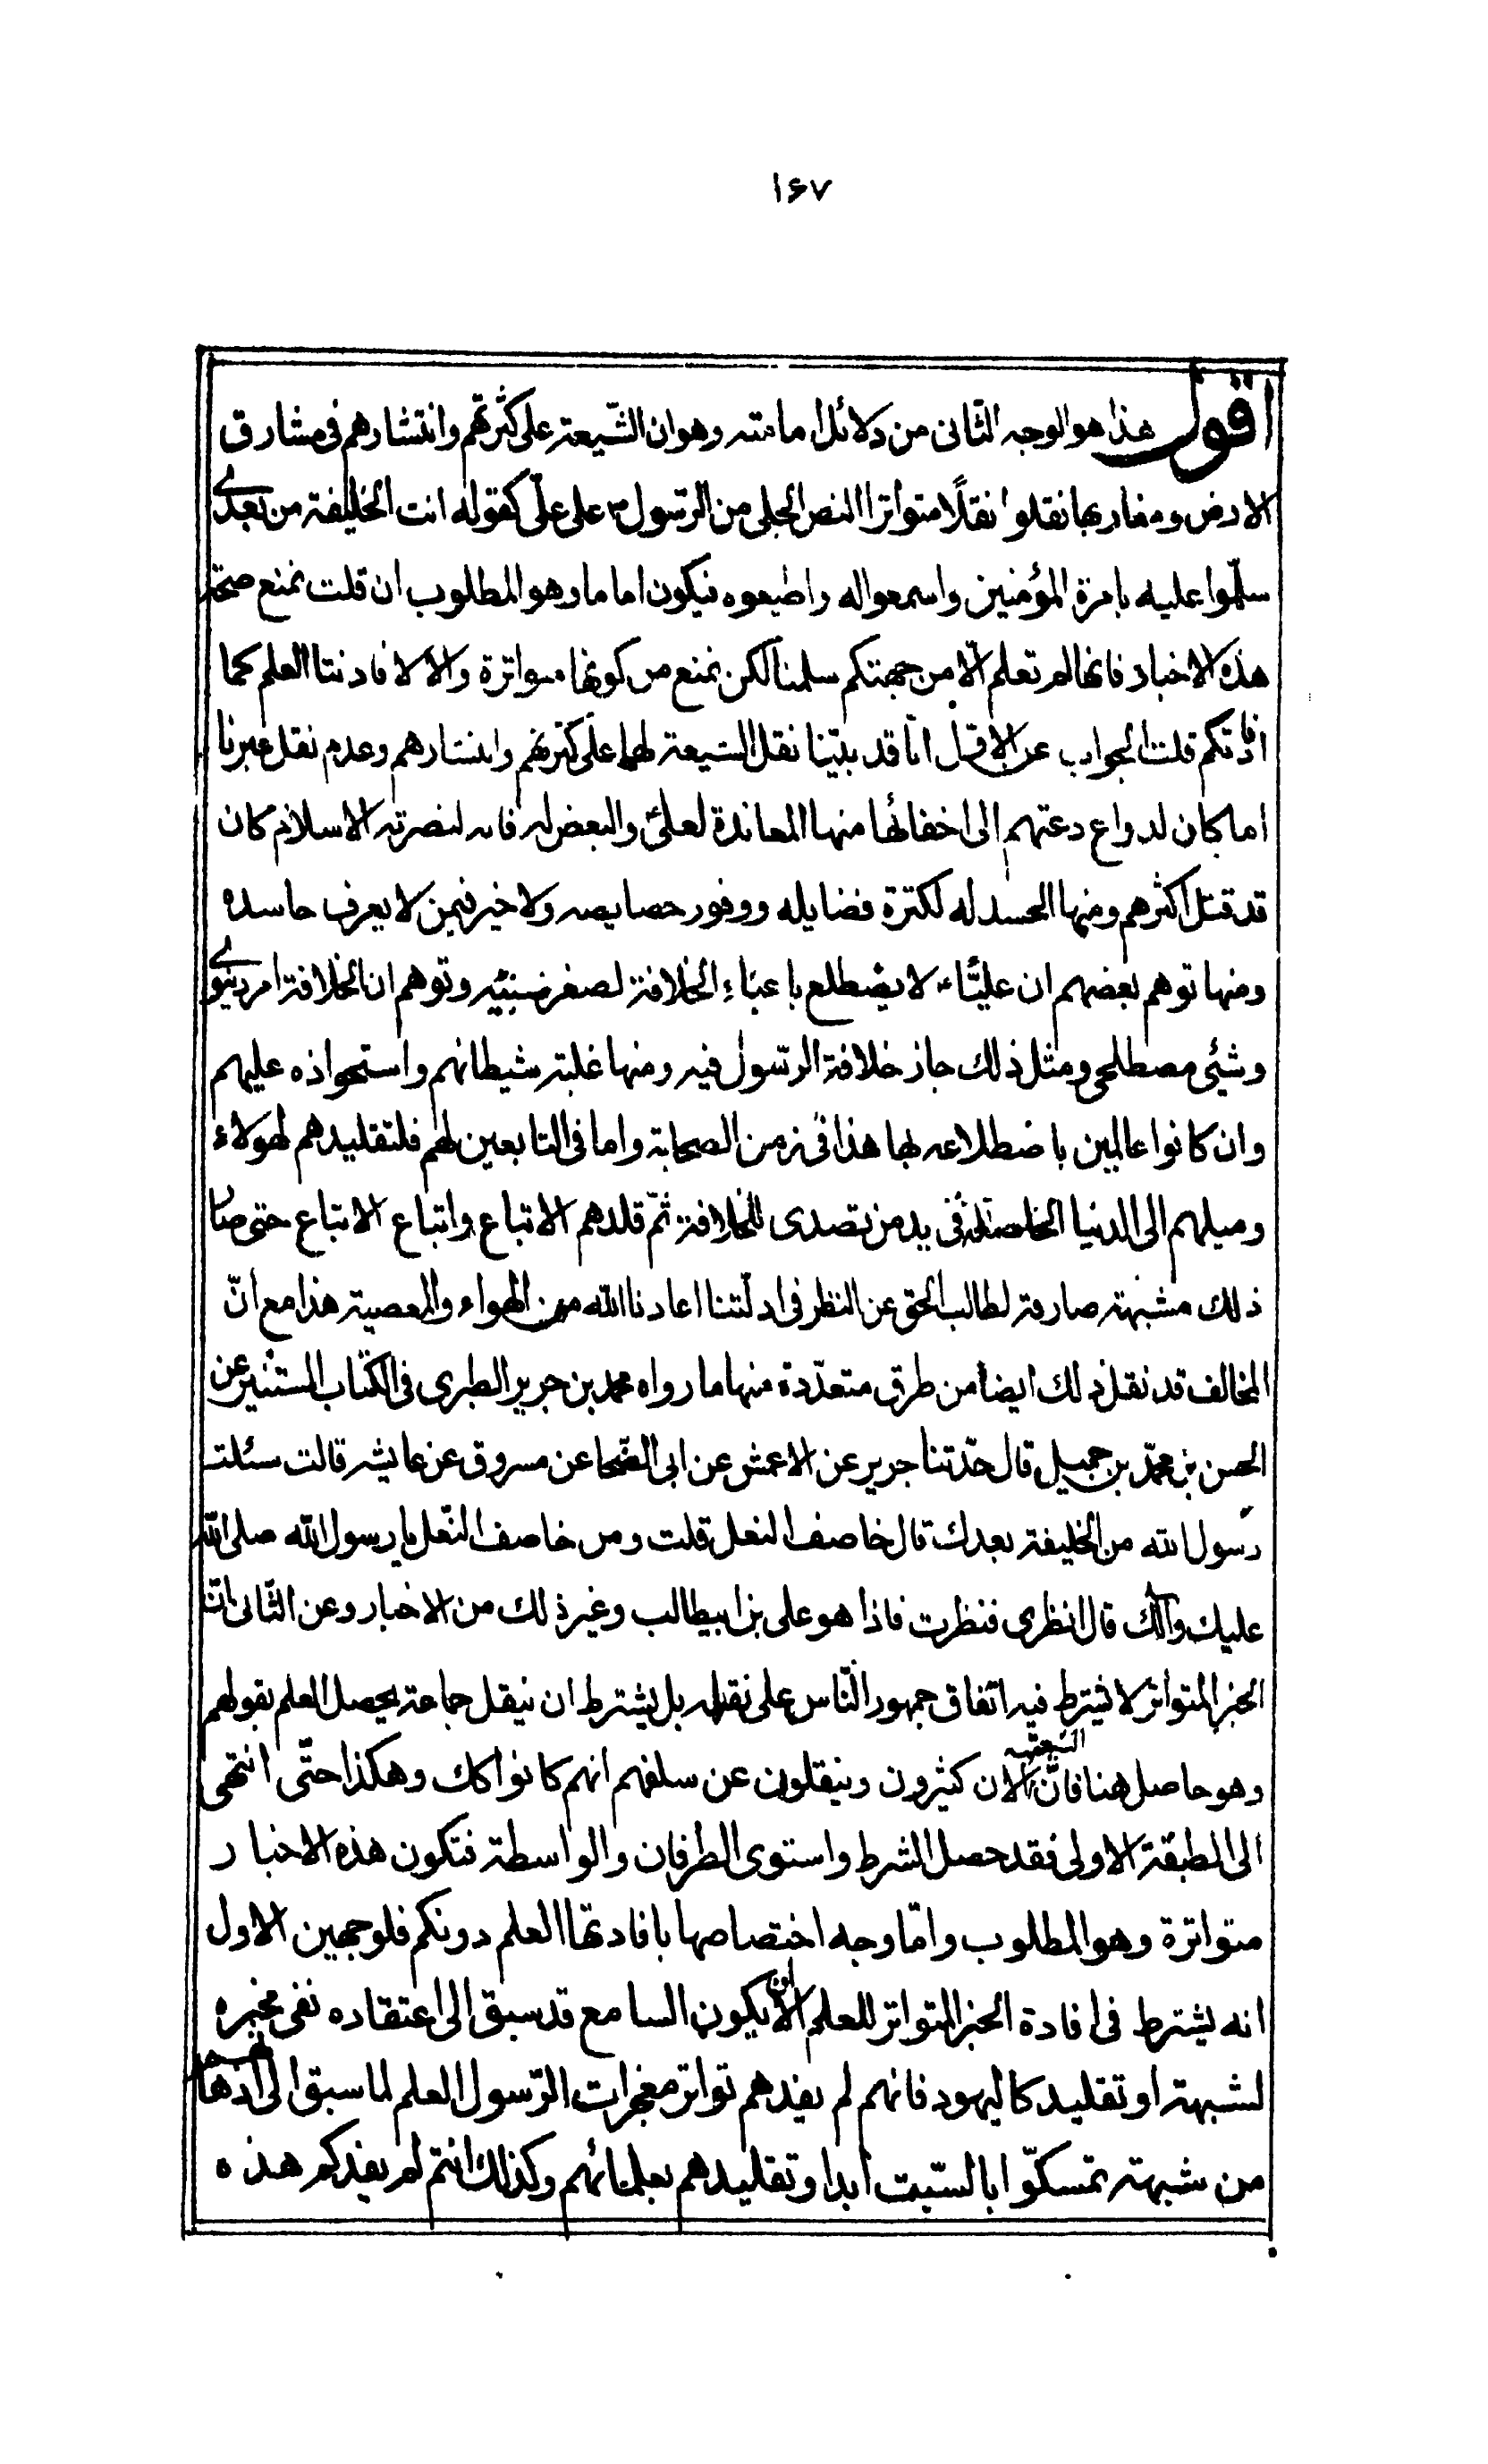 ۱۶۷
اقول هذا هو الوجه الثّانى من دلائل امامته وهو ان الشّيعة على كثرتهم وانتشارهم فى مشارق
الارض ومغاربها نقلوا نقلًا متواترا النص الجلى من الرّسول ص على علىّ كقوله انت الخليفة من بعدى
سلّموا عليه بامرة المؤمنين واسمعوا له واطيعوه فيكون اماما وهو المطلوب ان قلت نمنع صحة
هذه الاخبار فانها لم تعلم الّا من جهتكم سلمنا لكن نمنع من كونها متواترة والا لافادتنا العلم كما
افادتكم قلت الجواب عن الاوّل انّا قد بيّنا نقل الشيعة لها على كثرتهم وانتشارهم وعدم نقل غيرنا
اما كان لدواع دعتهم الى اخفائها منها المعاندة لعلىّ والبغض له فانه لنصرته الاسلام كان
قد قتل اكثرهم ومنها الحسد له لكثرة فضايله ووفور خصايصه ولا خير فيمن لا يعرف حاسده
ومنها توهم بعضهم ان عليّا ع لا يضطلع باعباء الخلافة لصغر سنّه وتوهم ان الخلافة امر دنيوى
وشيئى مصطلحى ومثل ذلك جاز خلافة الرّسول فيه ومنها غلبة شيطانهم واستحواذه عليهم
وان كانوا عالمين باضطلاعه بها هذا فى زمن الصحابة واما فى التابعين لهم فلتقليدهم لهولاء
وميلهم الى الدنيا الخاصلة فى يد من تصدى للخلافة ثمّ قلدهم الاتباع واتباع الاتباع حتى صار
ذلك مشبهة صارفة لطالب الحق عن النظر فى ادلّتنا اعاذنا الله من الهواء والمعصية هذا مع انّ
المخالف قد نقل ذلك ايضا من طرق متعدّدة منها ما رواه محمد بن جرير الطبرى فى الكتاب المستنير عن
الحسن بن محمّد بن جميل قال حدّثنا جرير عن الاعمش عن ابى الضّحا عن مسروق عن عايشه قالت سئلت
رسول الله من الخليفة بعدك قال خاصف النعل قلت ومن خاصف النّعل يا رسول الله صلى الله
عليك وآلك قال انظرى فنظرت فاذا هو على بن ابيطالب وغير ذلك من الاخبار وعن الثّانى انّ
الخبر المتواتر لا يشترط فيه اتفاق جمهور النّاس على نقله بل يشترط ان ينقل جماعة يحصل العلم بقولهم
وهو حاصل هنا فانّ الشيعة الان كثيرون وينقلون عن سلفهم انهم كانوا كك وهكذا حتّى انتهى
الى الطبقة الاولى فقد حصل الشرط واستوى الطرفان والواسطة فتكون هذه الاخبار
متواترة وهو المطلوب وامّا وجه اختصاصها بافادتها العلم دونكم فلوجهين الاول
انه يشترط فى افادة الخبر المتواتر للعلم ان لا يكون السامع قد سبق الى اعتقاده نفى مخبره
لشبهة او تقليد كاليهود فانهم لم يفدهم تواتر معجزات الرّسول العلم لما سبق الى اذهانهم
من شبهة تمسكوّا بالسّبت ابدا وتقليدهم بعلمائهم وكذلك انتم لم يفدكم هذه